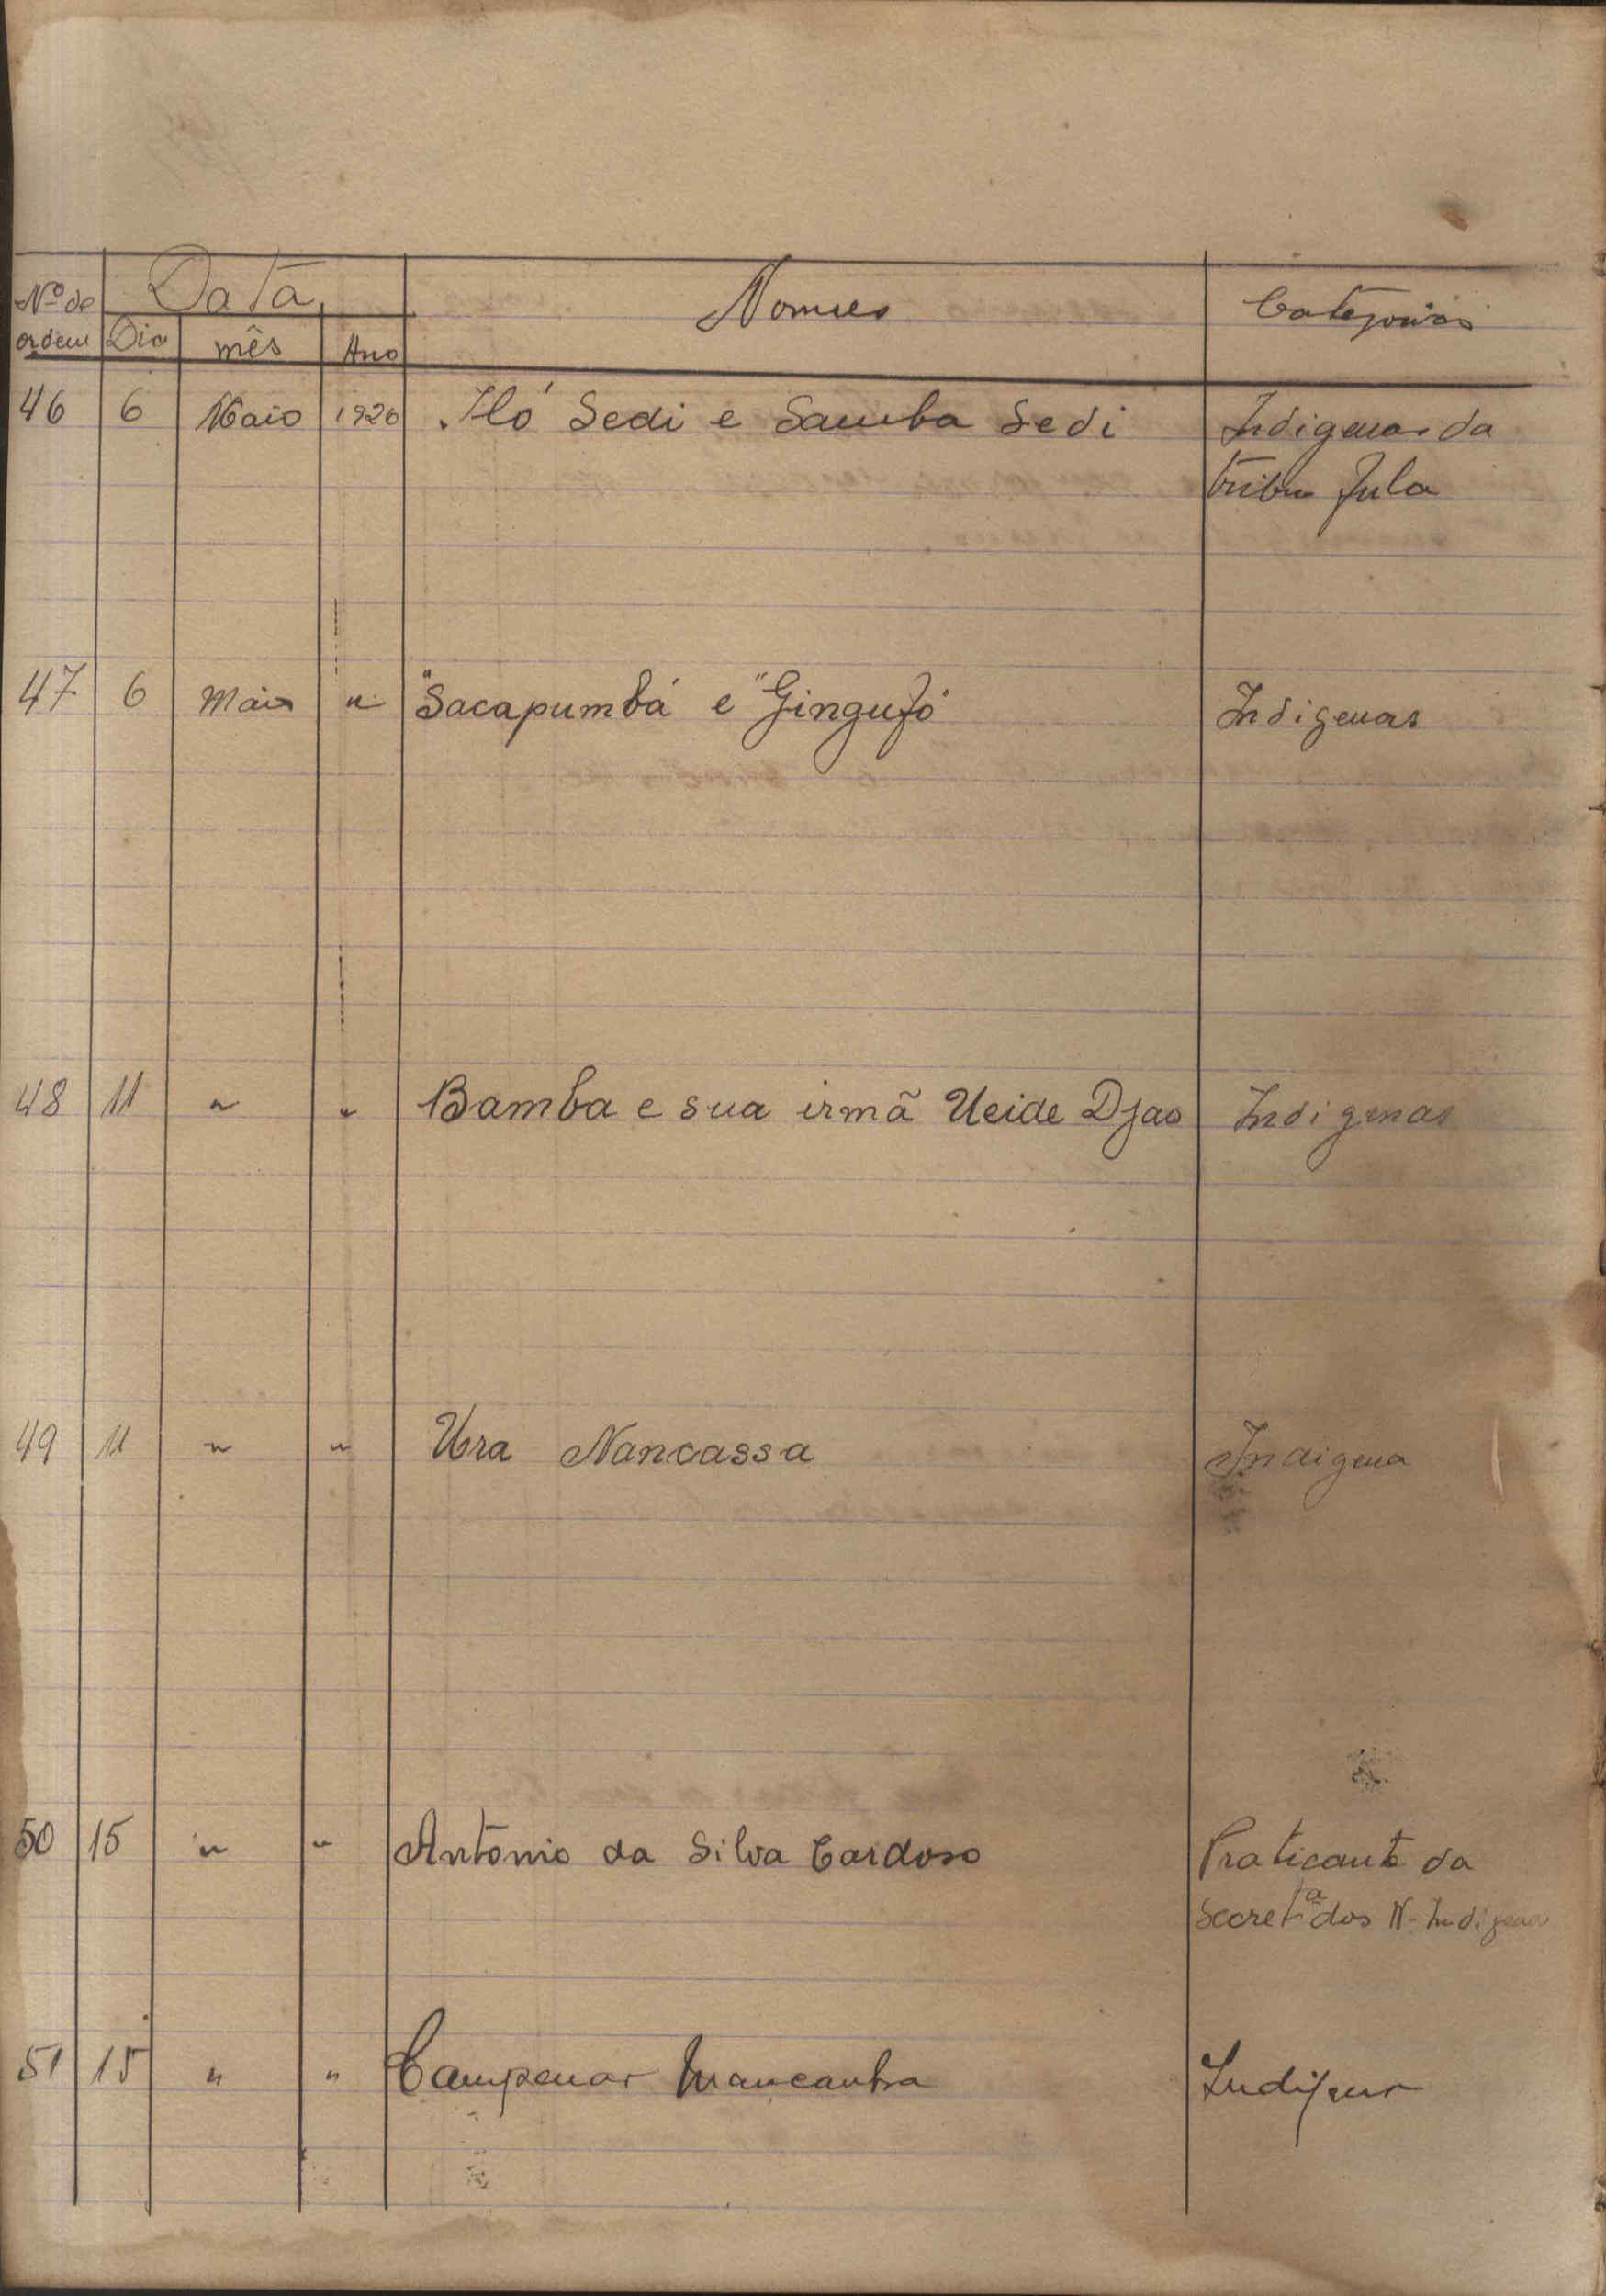 Nº de Data Nomes Categorias
ordem Dia mês Ano
46 6 Maio 1926 Iló Sedi e Samba Sedi Indigenas da
tribu Fula
47 6 Maio " "Sacapumbá e "Gingufó Indigenas
48 11 " " Bamba e sua irmã Ueide Djao Indigenas
49 11 " " Ura Nancassa Indigena
50 15 " " Antonio da Silva Cardoso Praticante da
Secretª dos N. Indigenas
51 15 " " Mancanha Indigena